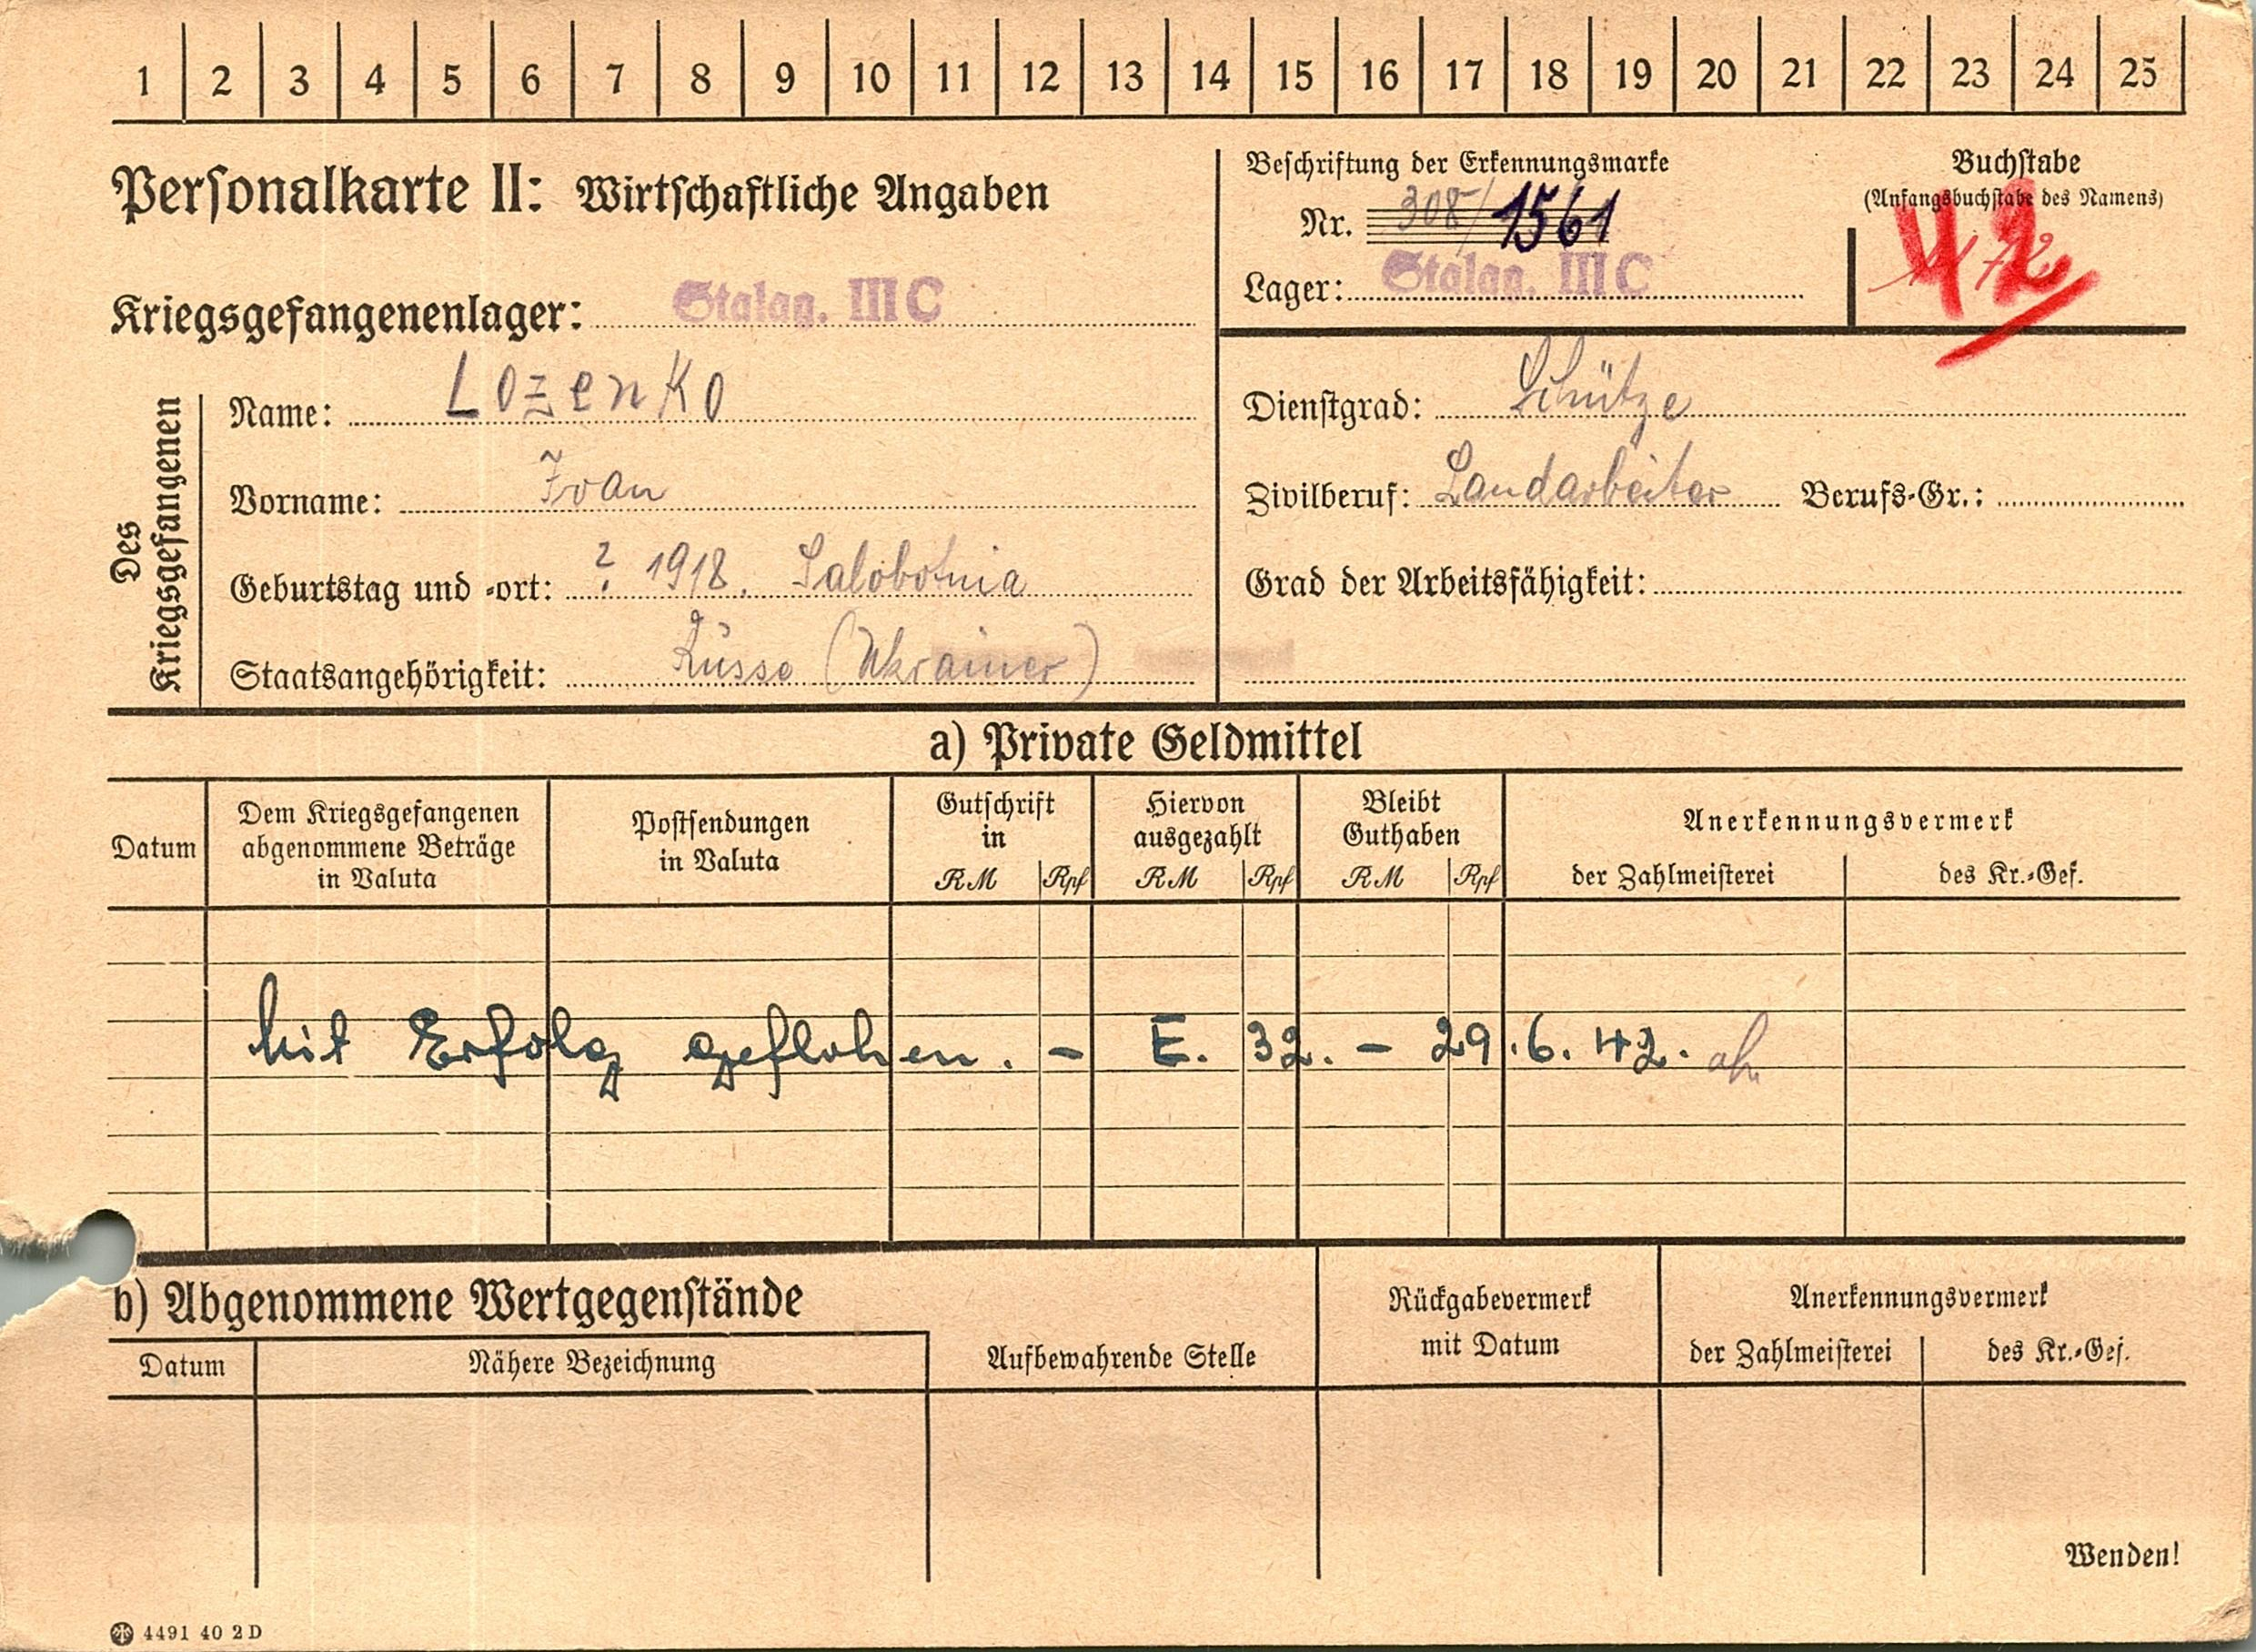 1 2 3 4 5 6 7 8 9 10 11 12 13 14 15 16 17 18 19 20 21 22 23 24 25
Personalkarte II: Wirtschaftliche Angaben
Kriegsgefangenenlager: Stalag. III C
Beschriftung der Erkennungsmarke
Nr. 308/1561
Lager: Stalag. III C
Buchstabe
(Anfangsbuchstabe des Namens)
42
Des Kriegsgefangenen
Name: Lozenko
Vorname: Ivan
Geburtstag und -ort: ? 1918. Salobotnia
Staatsangehörigkeit: Russe (Ukrainer)
Dienstgrad: Schütze
Zivilberuf: Landarbeiter Berufs-Gr.:
Grad der Arbeitsfähigkeit:
a) Private Geldmittel
Datum
Dem Kriegsgefangenen
abgenommene Beträge
in Valuta
Postsendungen
in Valuta
Gutschrift
in
RM Rpf
Hiervon
ausgezahlt
RM Rpf
Bleibt
Guthaben
RM Rpf
Anerkennungsvermerk
der Zahlmeisterei des Kr.-Gef.
Mit Erfolg geflohen. - E. 32. - 29.6.42.
b) Abgenommene Wertgegenstände
Datum Nähere Bezeichnung
Aufbewahrende Stelle
Rückgabevermerk
mit Datum
Anerkennungsvermerk
der Zahlmeisterei des Kr.-Gef.
Wenden!
4491 40 2 D